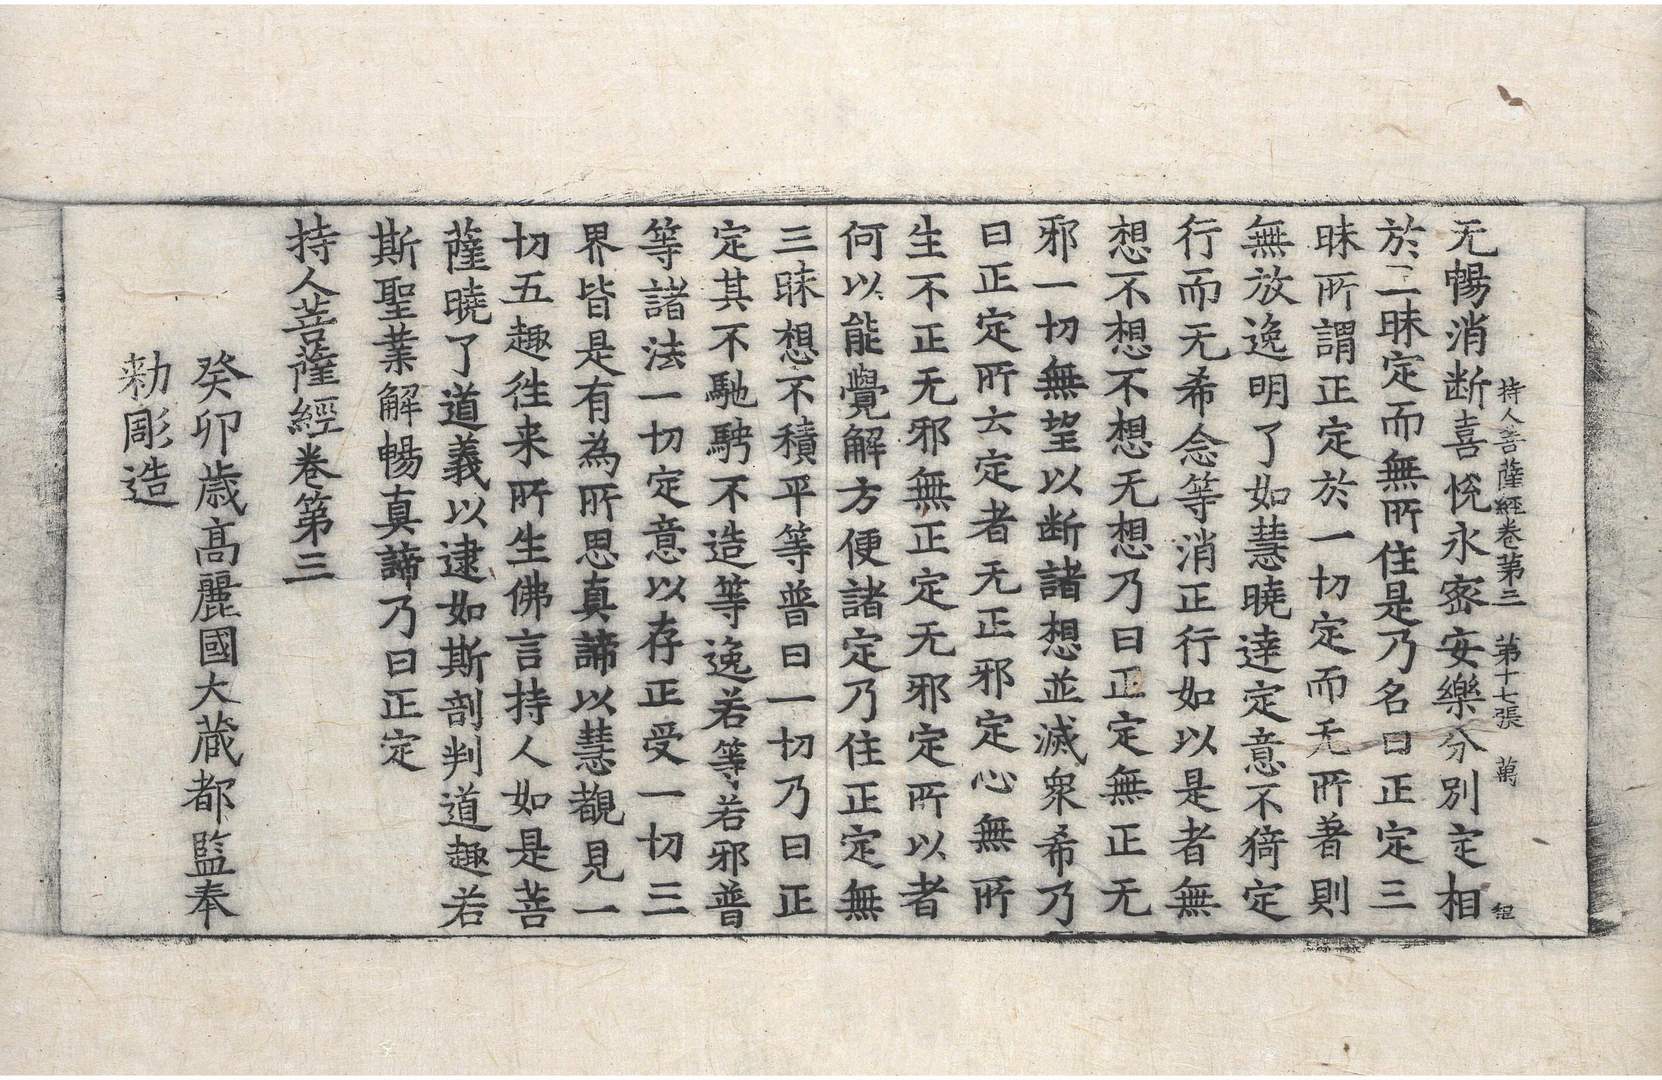 持人菩薩經卷第三 第十七張 萬
无暢消断喜悅永密安樂分別定相
於二昧定而無所住是乃名曰正定三
昧所謂正定於一切定而无所著則
無放逸明了如慧曉達定意不猗定
行而无希念等消正行如以是者無
想不想不想无想乃曰正定無正无
邪一切無望以断諸想並滅衆希乃
曰正定所云定者无正邪定心無所
生不正无邪無正定无邪定所以者
何以能覺解方便諸定乃住正定無
三昧想不積平等普曰一切乃曰正
定其不馳騁不造等逸若等若邪普
等諸法一切定意以存正受一切三
界皆是有為所思真諦以慧觀見一
切五趣徃来所生佛言持人如是菩
薩曉了道義以逮如斯剖判道趣若
斯聖業解暢真諦乃曰正定
持人菩薩經卷第三
癸卯歲髙麗國大蔵都監奉
勑彫造